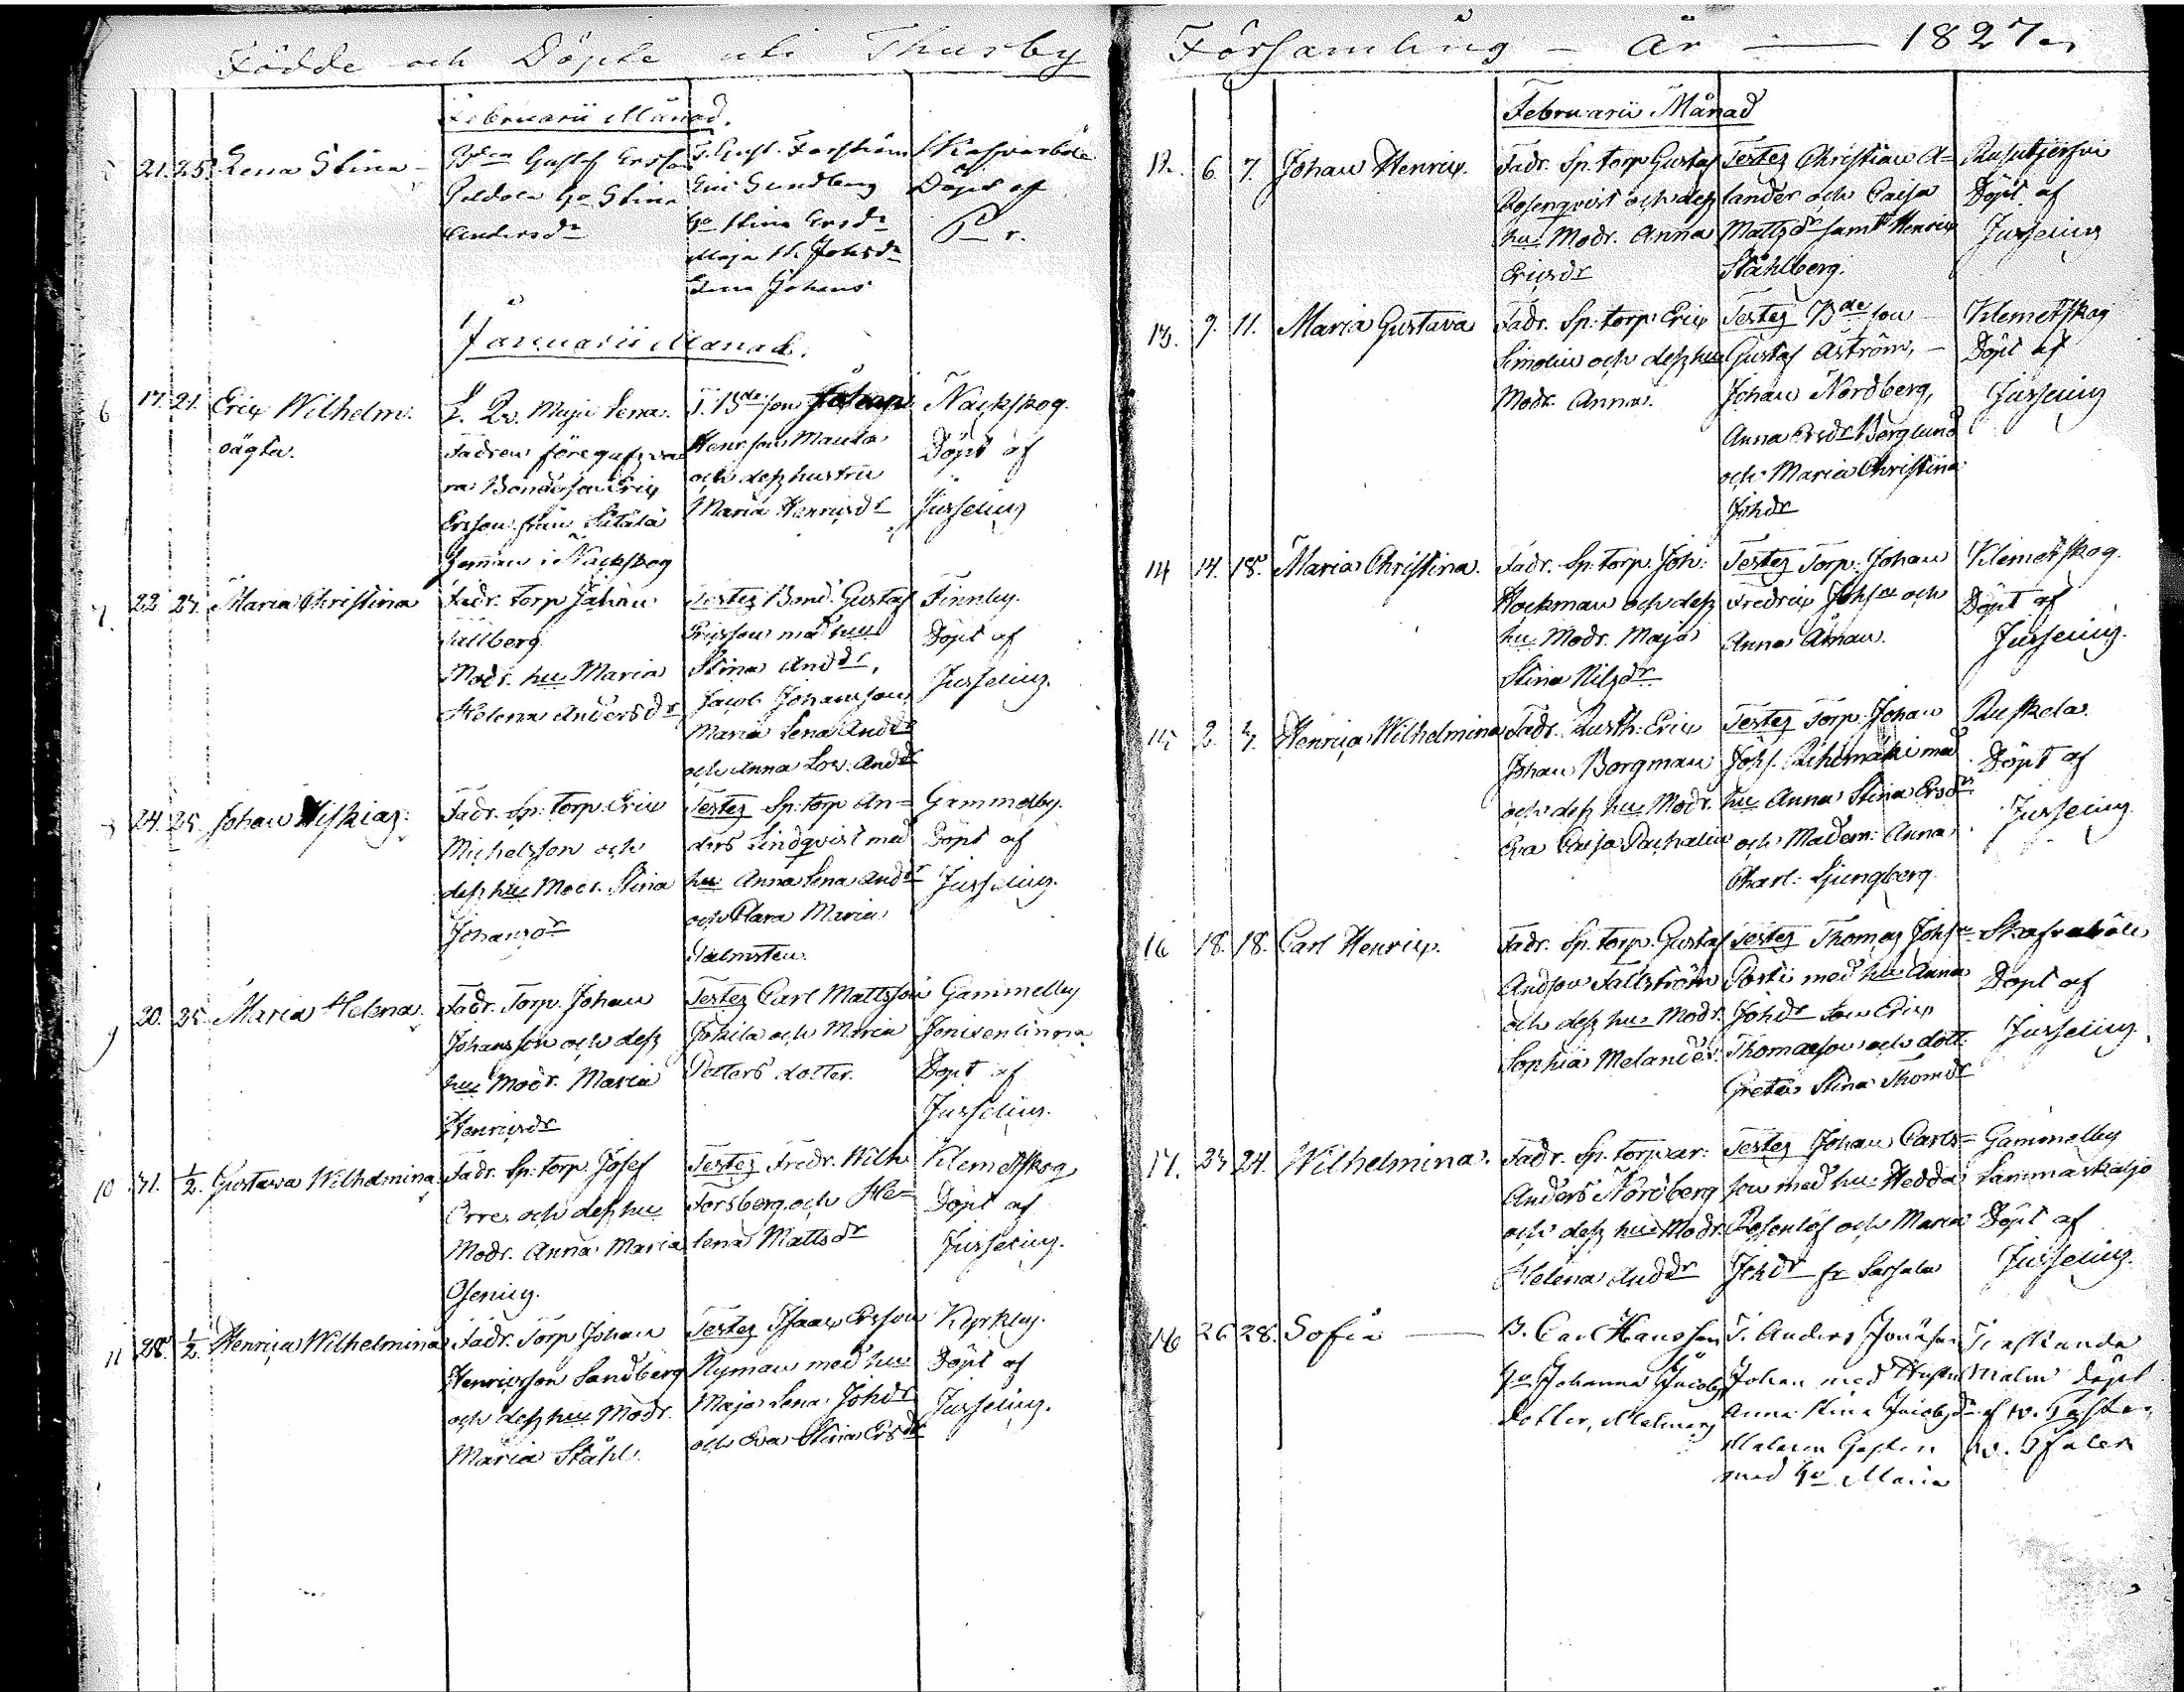 Födde och Döpte uti Thusby
Februarii Månad.
21. 25. Lena Stina
Bden Gustaf Ersson
Hu Stina
Andersdr
T. Gust. Forström
Eric Sundberg
Hu Stina Ersdr
Maja St. Johsdr
Lena Johans
Skafvarböle
Döpt af
P r.
Januarii Månad.
6 17. 21. Eric Wilhelm.
oägta.
Maja Lena.
Fadren föregafs va
ra Bondeson Eric
Ersson från
hemman i Nackskog
T. Bde son Johan
Henr son
och dess hustru
Maria Henricsdr
Nackskog.
Döpt af
Jusselius
7. 22. 27. Maria Christina
Fadr. torp Johan
Tallberg
Modr. hu Maria
Helena Andersdr
Testes Bond. Gustaf
Ericsson med hu
Stina Anddr,
Jacob Johansson,
Maria Lena Anddr
och Anna Lov. Anddr
Finnby.
Döpt af
Jusselius.
24. 25. Johan Hiskias.
Fadr. Sp. torp. Eric
Michelsson och
dess hu Modr. Stina
Johansdr
Testes Sp. torp An=
ders Lindqvist med
hu Anna Lena Anddr
och Clara Maria
Malmsten.
Gammelby.
Döpt af
Jusselius.
9 20. 25. Maria Helena.
Fadr. Torp. Johan
Johansson och dess
hu Modr. Maria
Henricsdr
Testes Carl Mattsson
Johila och Maria
Petters dotter.
Gammelby
Jenisenlinna
Döpt af
Jusselius.
10 31. 1/2. Gustava Wilhelmina.
Fadr. Sp. torp. Josef
Orre och dess hu
Modr. Anna Maria
Osenius.
Testes Fredr. Wilh
Forsberg och He=
lena Mattsdr
Klemetskog
Döpt af
Jusselius.
11 28. 1/2. Henrica Wilhelmina
Fadr. Torp Johan
Henricsson Sandberg
och dess hu Modr.
Maria Ståhl.
Testes Isaac Ersson
Nyman med hu
Maja Lena Johdr
och Eva Stina Ersdr
Kyrkby.
Döpt af
Jusselius.
Församling – År — 1827
Februarii Månad
12. 6. 7. Johan Henric.
Fadr. Sp. torp Gustaf
Rosenqvist och dess
hu Modr. Anna
Ericsdr
Testes Christian A=
lander och Caisa
Mattsdr samt Henric
Ståhlberg.
Döpt af
Jusselius
13. 9. 11. Maria Gustava
Fadr. Sp. torp Eric
Simolin och dess hu
Modr. Anna.
Testes Bde son
Gustaf Åström,
Johan Nordberg,
Anna Ersdr Berglund
och Maria Christina
Johdr
Klemetskog
Döpt af
Jusselius
14 14. 18. Maria Christina.
Fadr. Sp. torp. Joh.
Hockman och dess
hu Modr. Maja
Stina Nilsdr
Testes Torp. Johan
Fredric Johsn och
Anna Åman.
Klemetskog.
Döpt af
Jusselius.
15 2. 7. Henrica Wilhelmina
Fadr. Rusth. Eric
Johan Borgman
och dess hu Modr.
Eva Caisa Pachalin
Testes Torp. Johan
Johs. Rihimäki med
hu Anna Stina Ersdr
och Madem. Anna
Charl. Ljungberg.
Ruskela.
Döpt af
Jusselius.
16 18. 18. Carl Henric.
Fadr. Sp. torp. Gustaf
Andson Tallström
och dess hu Modr.
Sophia Melander.
Testes Thomas Johsn
med hu Anna
Johdr son Eric
Thomasson och dott.
Greta Stina Thomdr
Skafvaböle
Döpt af
Jusselius.
17. 23 24. Wilhelmina.
Fadr. Sp. torpar:
Anders Nordberg
och dess hu Modr.
Helena Anddr
Testes Johan Carls=
son med hu Hedda
Rosenlöf och Maria
Johdr fr
Gammelby
Döpt af
Jusselius.
16 26 28. Sofia
B. Carl Hansson
Hu Johanna Jacobs
dotter,
T. Anders
Johan med Hustru
Anna Stina Jacobsdr
med Hu Maria
Träskända
Malm döpt
af v. Past.